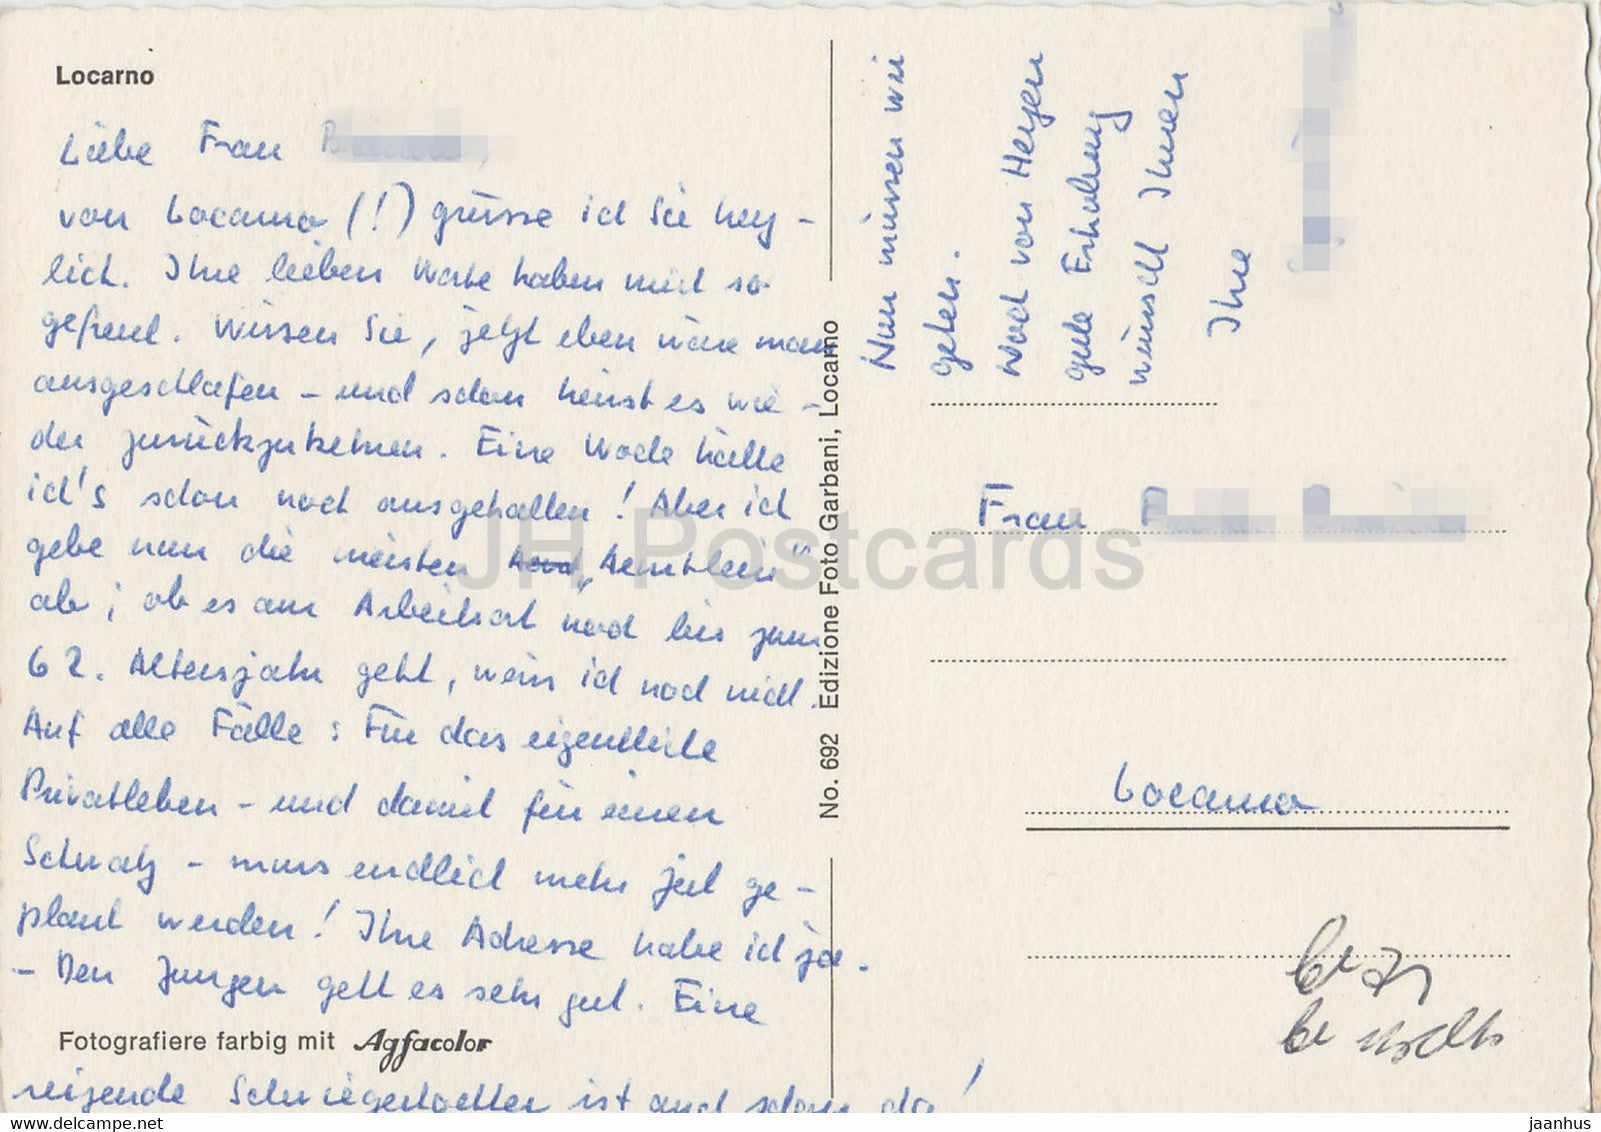 Locarno
Liebe Frau
von Locarno (!) grüsse ich Sie herz-
lich. Ihre lieben Worte haben mich so
gefreut. Wissen Sie, jetzt eben wäre man
ausgeschlafen - und schon heisst es wie-
der zurückzukehren. Eine Woche hätte
ich's schon noch ausgehalten! Aber ich
gebe nun die meisten „Aemtlein"
ab; ob es am Arbeitsort noch bis zum
62. Altersjahr geht, weiss ich noch nicht.
Auf alle Fälle: Für das eigentliche
Privatleben - und damit für einen
Schatz - muss endlich mehr Zeit ge-
plant werden! Ihre Adresse habe ich ja.
- Den Jungen geht es sehr gut. Eine
reizende Schwiegertochter ist auch schon da!
Fotografiere farbig mit Agfacolor
No. 692 Edizione Foto Garbani, Locarno
Nun müssen wir
gehen.
Und von Herzen
gute Erholung
wünscht Ihnen
Ihre
Frau
Locarno
JH Postcards
delcampe.net
jaanhus